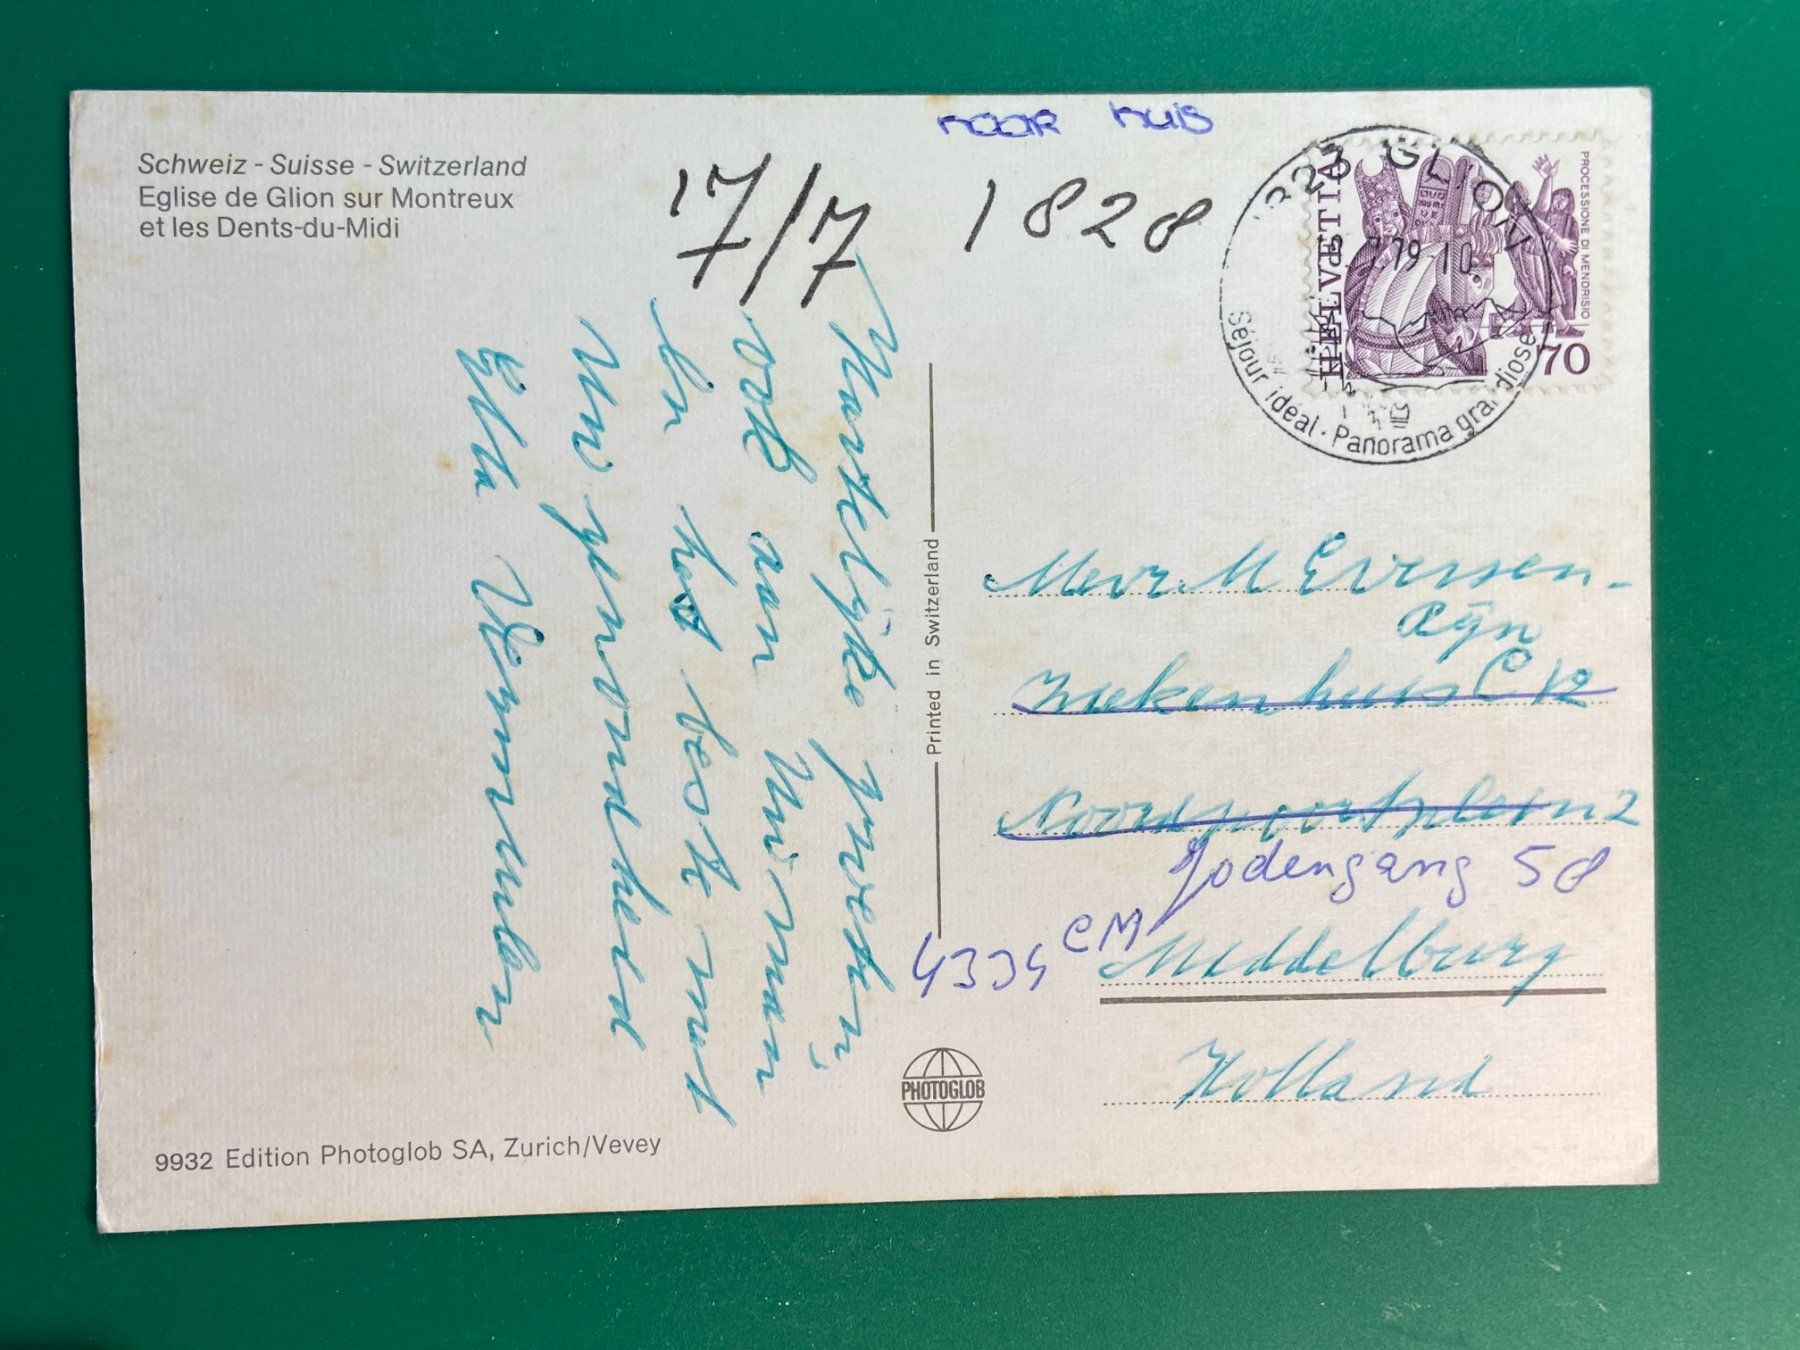 Schweiz - Suisse - Switzerland
Eglise de Glion sur Montreux
et les Dents-du-Midi
naar huis
17/7
1828
1823 GLION
7.79-10
Séjour idéal · Panorama grandiose
HELVETIA
PROCESSIONE DI MENDRISIO
70
Hartelijke groeten,
ook aan Uw man
en het beste met
Uw gezondheid
Ella
Printed in Switzerland
Mevr. M Eversen-
Rijn
Ziekenhuis C 12
Noordpoortplein 2
Jodengang 58
4334 CM
Middelburg
Holland
PHOTOGLOB
9932 Edition Photoglob SA, Zurich/Vevey